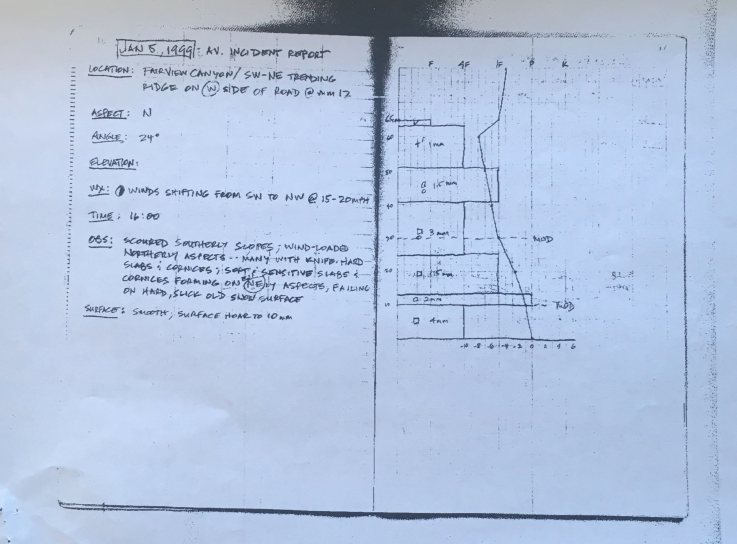 JAN 5, 1999: AV. INCIDENT REPORT
LOCATION: FAIRVIEW CANYON/ SW-NE TRENDING
RIDGE ON W SIDE OF ROAD @ mm 12
ASPECT: N
ANGLE: 24°
ELEVATION:
WX: WINDS SHIFTING FROM SW TO NW @ 15-20MPH
TIME: 16:00
OBS: SCOURED SOUTHERLY SLOPES; WIND-LOADED
NORTHERLY ASPECTS -- MANY WITH KNIFE-HARD
SLABS & CORNICES; SOFT, SENSITIVE SLABS &
CORNICES FORMING ON NE'LY ASPECTS, FAILING
ON HARD, SLICK OLD SNOW SURFACE
SURFACE: SMOOTH; SURFACE HOAR TO 10mm
F 4F 1F P K
60
+ 1mm
50
40
3mm
MOD
2mm
10
4mm
-10 -8 -6 -4 -2 0 2 4 6